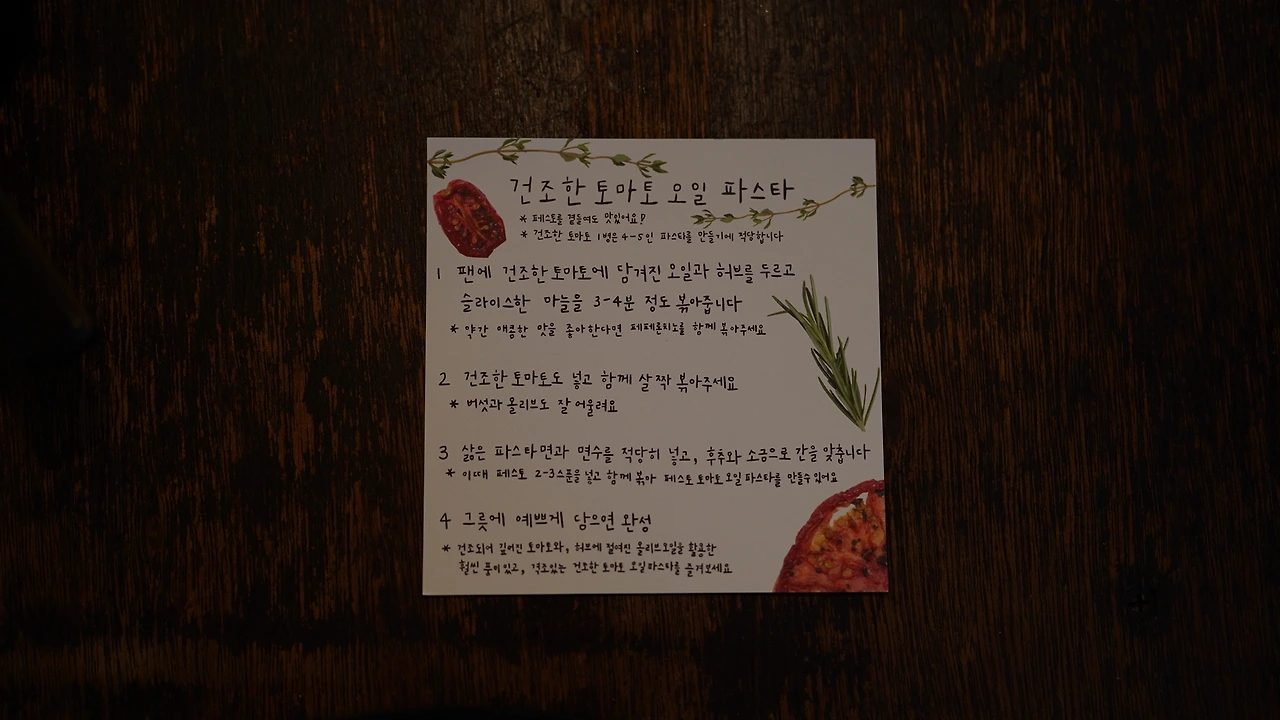 건조한 토마토 오일 파스타
* 페스토를 곁들여도 맛있어요!
* 건조한 토마토 1병은 4-5인 파스타를 만들기에 적당합니다
1 팬에 건조한 토마토에 담겨진 오일과 허브를 두르고
슬라이스한 마늘을 3-4분 정도 볶아줍니다
* 약간 매콤한 맛을 좋아한다면 페페론치노를 함께 볶아주세요
2 건조한 토마토도 넣고 함께 살짝 볶아주세요
* 버섯과 올리브도 잘 어울려요
3 삶은 파스타면과 면수를 적당히 넣고, 후추와 소금으로 간을 맞춥니다
* 이때 페스토 2-3스푼을 넣고 함께 볶아 페스토 토마토 오일 파스타를 만들수 있어요
4 그릇에 예쁘게 담으면 완성
* 건조되어 깊어진 토마토와, 허브에 절여진 올리브오일을 활용한
훨씬 풍미있고, 격조있는 건조한 토마토 오일 파스타를 즐겨보세요